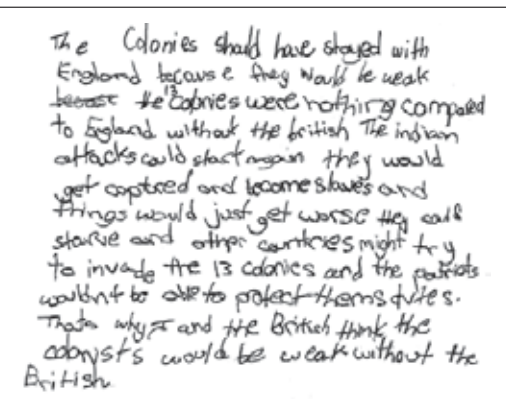 The Colonies should have stayed with
England because they would be weak
the 13 colonies were nothing compared
to England without the british The indian
attacks could start again they would
get captred and become slaves and
things would just get worse they could
starve and other countries might try
to invade the 13 colonies and the patriots
wouldn't be able to protect themselves.
Thats why I and the British think the
colonysts would be weak without the
British